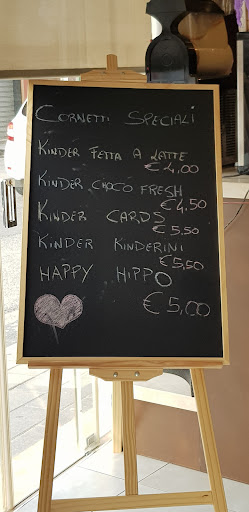 CORNETTI SPECIALI
KINDER FETTA A LATTE
€ 4,00
KINDER CHOCO FRESH
€ 4,50
KINDER CARDS
€ 5,50
KINDER KINDERINI
€ 5,50
HAPPY HIPPO
€ 5,00